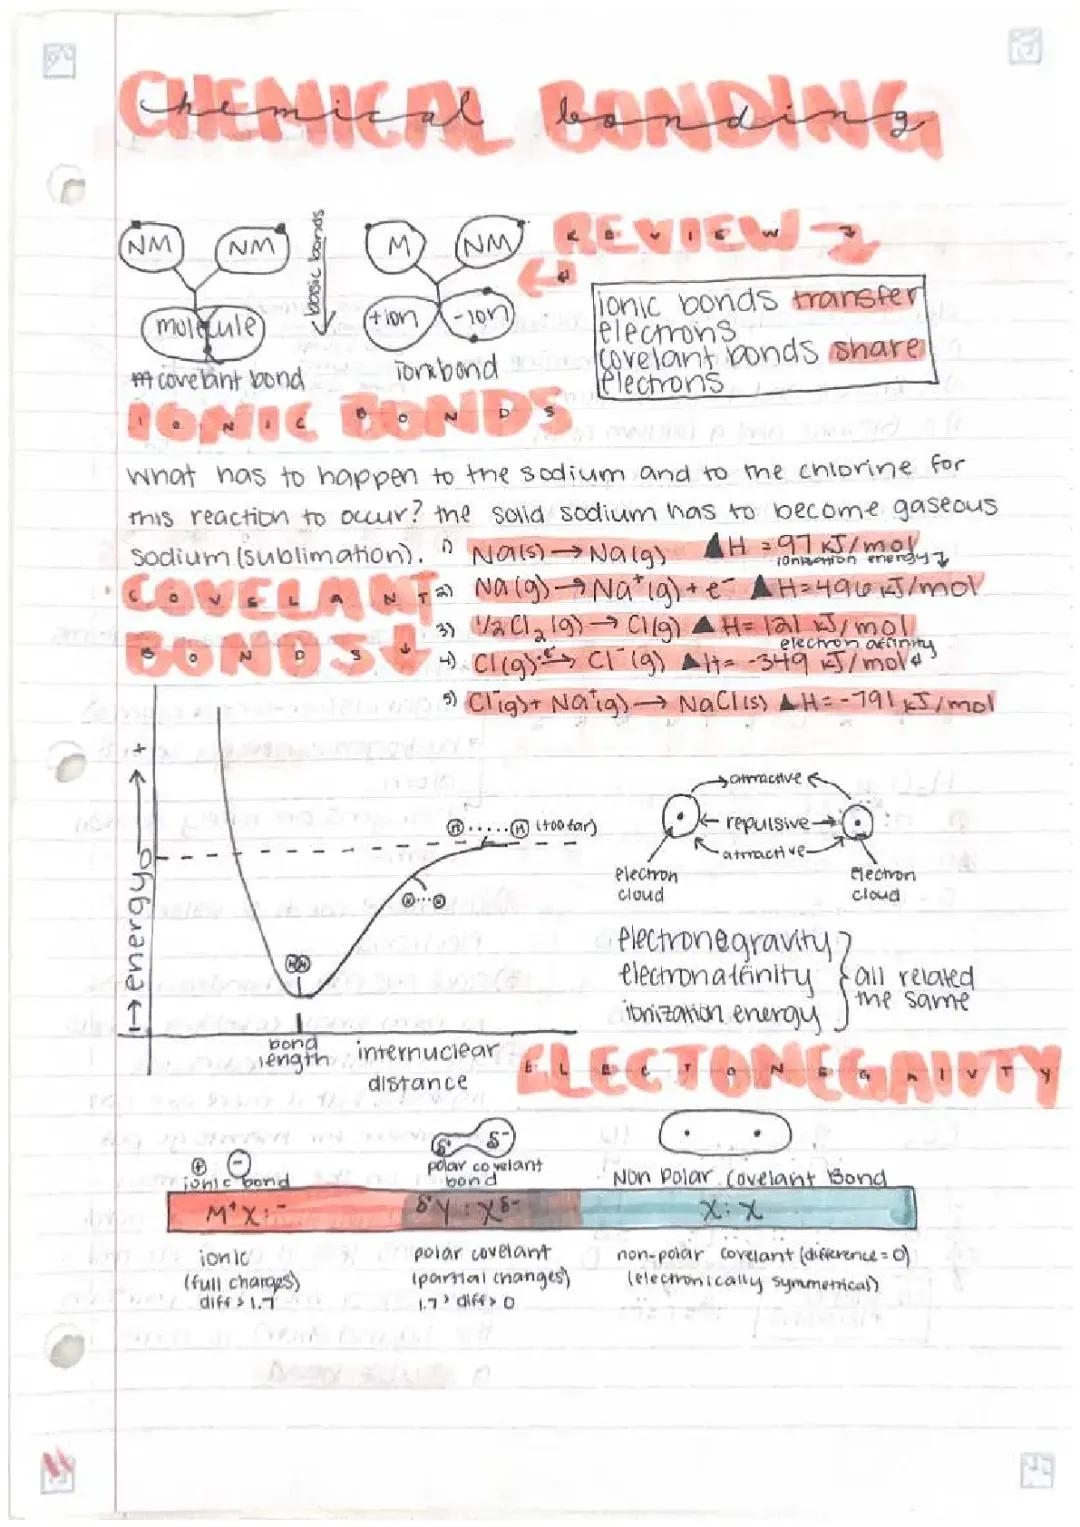 CHEMICAL BONDING
chemical bonding
NM NM
molecule
covelant bond
basic bonds
M NM
+ion -ion
ionic bond
REVIEW
REVIEW
ionic bonds transfer
electrons
covelant bonds share
electrons
IONIC BONDS
IONIC BONDS
what has to happen to the sodium and to the chlorine for
this reaction to occur? the solid sodium has to become gaseous
sodium (sublimation).
1) Na(s) → Na(g) ▲H = 97 kJ/mol
ionization energy
2) Na(g) → Na⁺(g) + e⁻ ▲H = 496 kJ/mol
3) 1/2 Cl₂(g) → Cl(g) ▲H = 121 kJ/mol
electron affinity
4) Cl(g) e⁻→ Cl⁻(g) ▲H = -349 kJ/mol
5) Cl⁻(g) + Na⁺(g) → NaCl(s) ▲H = -791 kJ/mol
COVELANT
COVELANT
BONDS ↓
BONDS
↦ energy → +
0
H ..... H (too far)
H...H
HH
bond
length
internuclear
distance
attractive
repulsive
attractive
electron
cloud
electron
cloud
electronegravity
electron affinity
ionization energy
all related
the same
ELECTONEGAIVTY
+ -
ionic bond
δ⁺ δ⁻
polar covelant
bond
Non Polar Covelant Bond
M⁺X:⁻ δ⁺Y : Xδ⁻ X : X
ionic
(full charges)
diff > 1.7
polar covelant
(partial changes)
1.7 > diff > 0
non-polar covelant (difference = 0)
(electronically symmetrical)